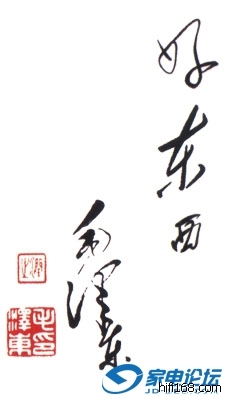 好东西
毛泽东
毛印
澤東
家电论坛
hifi168.com